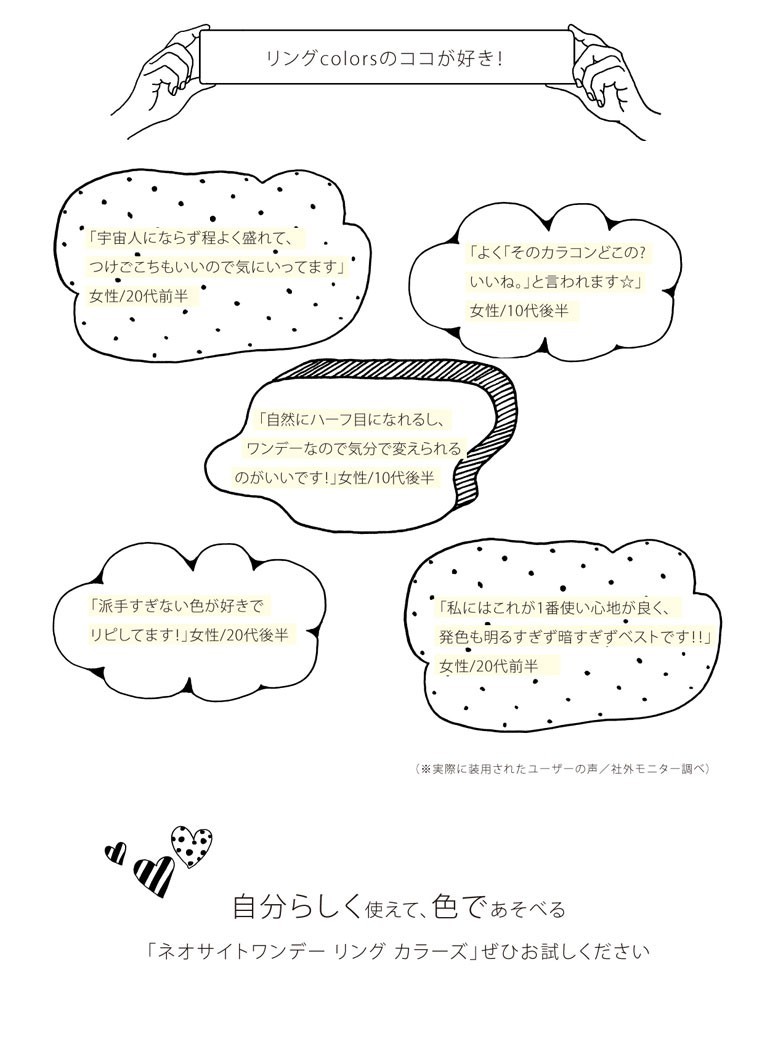 リングcolorsのココが好き!
「宇宙人にならず程よく盛れて、
つけごこちもいいので気にいってます」
女性/20代前半
「よく「そのカラコンどこの?
いいね。」と言われます☆」
女性/10代後半
「自然にハーフ目になれるし、
ワンデーなので気分で変えられる
のがいいです!」女性/10代後半
「派手すぎない色が好きで
リピしてます!」女性/20代後半
「私にはこれが1番使い心地が良く、
発色も明るすぎず暗すぎずベストです!!」
女性/20代前半
（※実際に装用されたユーザーの声／社外モニター調べ）
自分らしく使えて、色であそべる
「ネオサイトワンデー リング カラーズ」ぜひお試しください